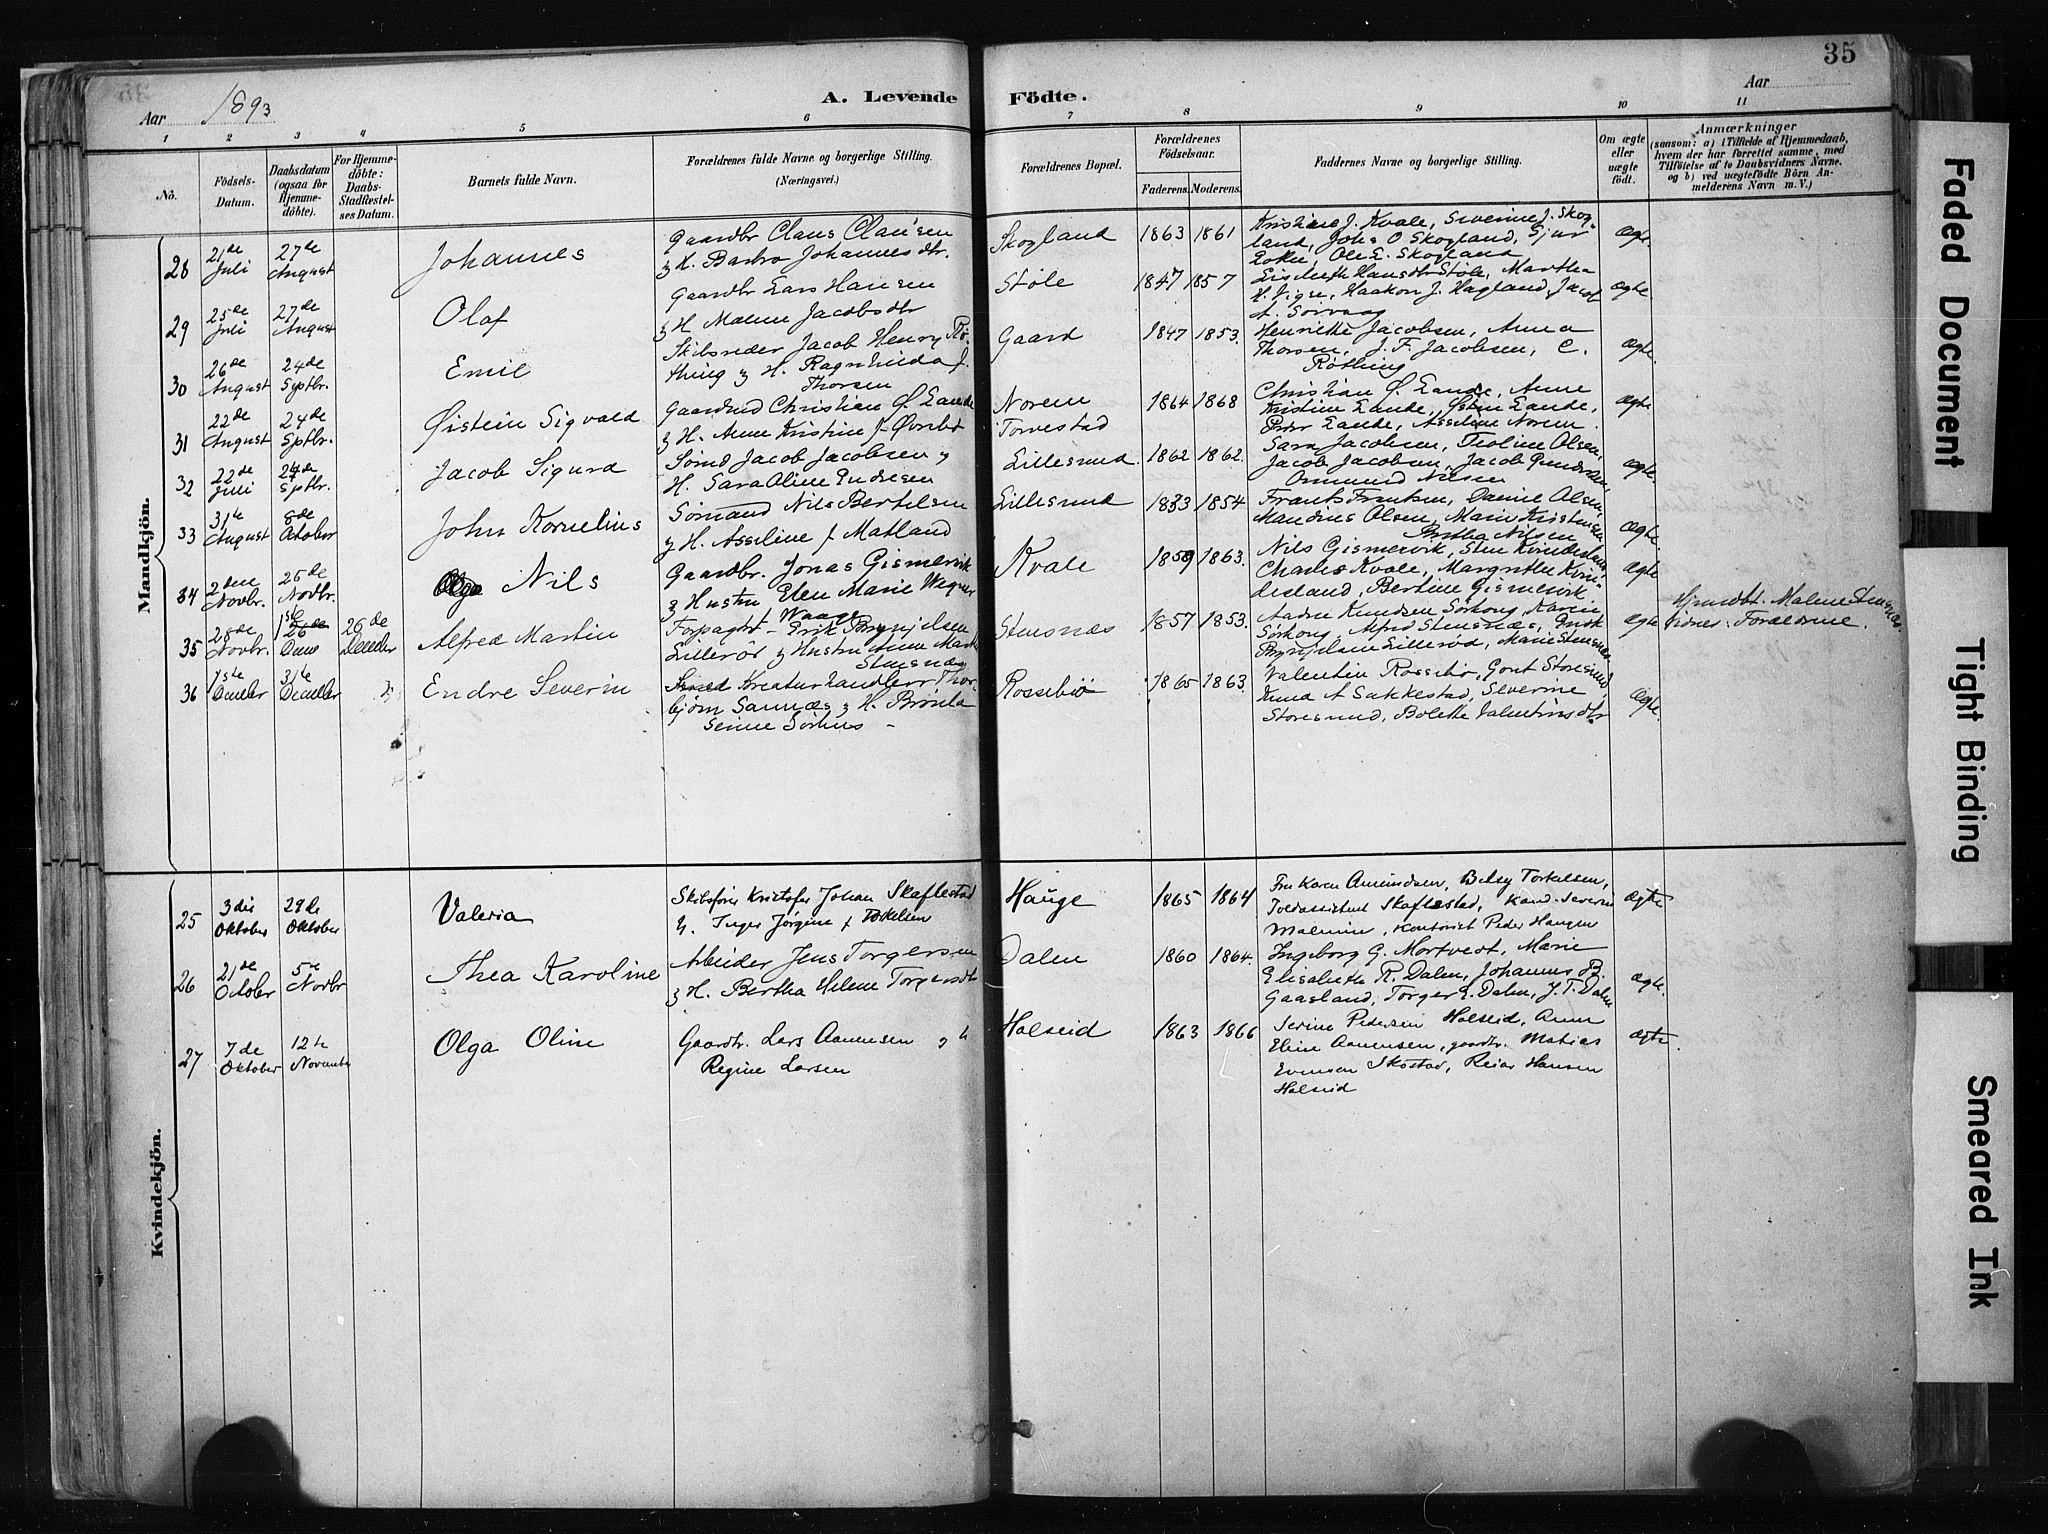 35
Aar 1893
A. Levende Födte.
Aar
1 2 3 4 5 6 7 8 9 10 11
No.
Födsels-Datum.
Daabsdatum (ogsaa for Hjemmedöbte).
For Hjemmedöbte: Daabs-Stadfestelses Datum.
Barnets fulde Navn.
Forældrenes fulde Navne og borgerlige Stilling. (Næringsvei.)
Forældrenes Bopæl.
Forældrenes Födselsaar.
Faderens. Moderens.
Faddernes Navne og borgerlige Stilling.
Om ægte eller uægte födt.
Anmærkninger
(saasom: a) i Tilfælde af Hjemmedaab, hvem der har forrettet samme, med Tilföielse af to Daabsvidners Navne, og b) ved uægtefödte Börn Anmelderens Navn m. V.)
Mandkjön.
28 21de Juli 27de August Johannes Gaardbr Claus Clausen
& H. Barbro Johannesdtr. Skogland 1863 1861 Kristine J. Kvale, Severine J. Skogland, Johs O Skogland, Sjur
Ole E. Skogland ægte
29 25de Juli 27de August Olaf Gaardbr Lars Hansen
& H Malene Jacobsdtr Støle 1847 1857 Elisabeth Hansdtr Støle, Martha
H. Vigse, Haakon J. Hagland, Jacob
A. Sørvaag ægte
30 26de August 24de Septbr. Emil Skibsreder Jacob Henry Røthing & H. Ragnhilda f. Thorsen Gaard 1847 1853. Henriette Jacobsen, Anna
Thorsen, J. F. Jacobsen, C.
Røthing ægte.
31 22de August 24de Septbr. Øistein Sigvald Gaardmd Christian Ø. Lande
& H. Anne Kristine f. Norem Torvestad 1864 1868 Christian Ø. Lande, Anne
Kristine Lande, Østen Lande,
Peder Lande, Asseline Norem ægte
32 22de Juli 24de Septbr. Jacob Sigurd Sømd Jacob Jacobsen &
H. Sara Oline Endresen Lillesund. 1862 1862. Sara Jacobsen, Tholine Olsen,
Jacob Jacobsen, Jacob
Osmund Nilsen ægte.
33 31te August 8de October John Kornelius Sømand Nils Bertelsen
& H. Asseline f. Matland Lillesund 1833 1854 Frants Frantsen, Daniel Olsen,
Maudius Olsen, Marie Kristensen
Bertha Nilsen ægte.
34 2den Novbr. 26de Novbr. Olga Nils Gaardbr. Jonas Gismervik
& Hustru Elen Marie Wegner
Waage Kvale 1859 1863. Nils Gismervik, Sten Kvindesland,
Charles Kvale, Margrethe Kvindesland, Bertine Gismervik ægte
35 28de Novbr. 1ste 26de Dene 26de Decbr Alfred Martin Forpagtr – Erik Brynjelsen
Lillerød & Hustru Anne Marthe
Stensnæs Stensnæs 1857 1853. Aadne Knudsen Sørhoug, Karen
Sørhoug, Alfred Stensnæs, Erik
Brynjelsen Lillerød, Marie Stensnæs ægte Hjemdbt. Malene Stensnæs.
Vidner: Forældrene.
36 1ste December 31te December Endre Severin Sømd Kreaturhandler Thorbjørn Sannæs & H. Brønla
Serine Sørhus – Rossebiø 1865 1863. Valentin Rossebø, Gort Storesund
Knud A Sakkestad, Severine
Storesund, Bolette Valentinsdtr ægte.
Kvindekjön.
25 3die Oktober 29de Oktober Valeria Skibsfører Kristofer Johan Skaftestad
H. Inger Jørgine f. Torkelsen Hauge 1865 1864 Fru Karen Amundsen, Betsy Torkelsen,
Toldassistent Skaftestad, Kand. Severin
Malmin, Kontorist Peder Haugen ægte
26 21de October 5te Novbr Thea Karoline Arbeider Jens Torgersen
& H. Bertha Helene Torgersdtr Dalen 1860 1864. Ingeborg G. Mortvedt, Marie
Elisabeth R. Dalen, Johannes B.
Gaasland, Torger E. Dalen, J. T. Dalen ægte.
27 7de Oktober 12te November Olga Oline Gaardbr. Lars Aanensen & H
Regine Larsen Holseid 1863 1866 Serine Pedersen Holseid, Anne
Eline Aanensen, gaardbr. Matias
Evensen Skostad, Reiar Hansen
Holseid ægte.
Faded Document
Tight Binding
Smeared Ink